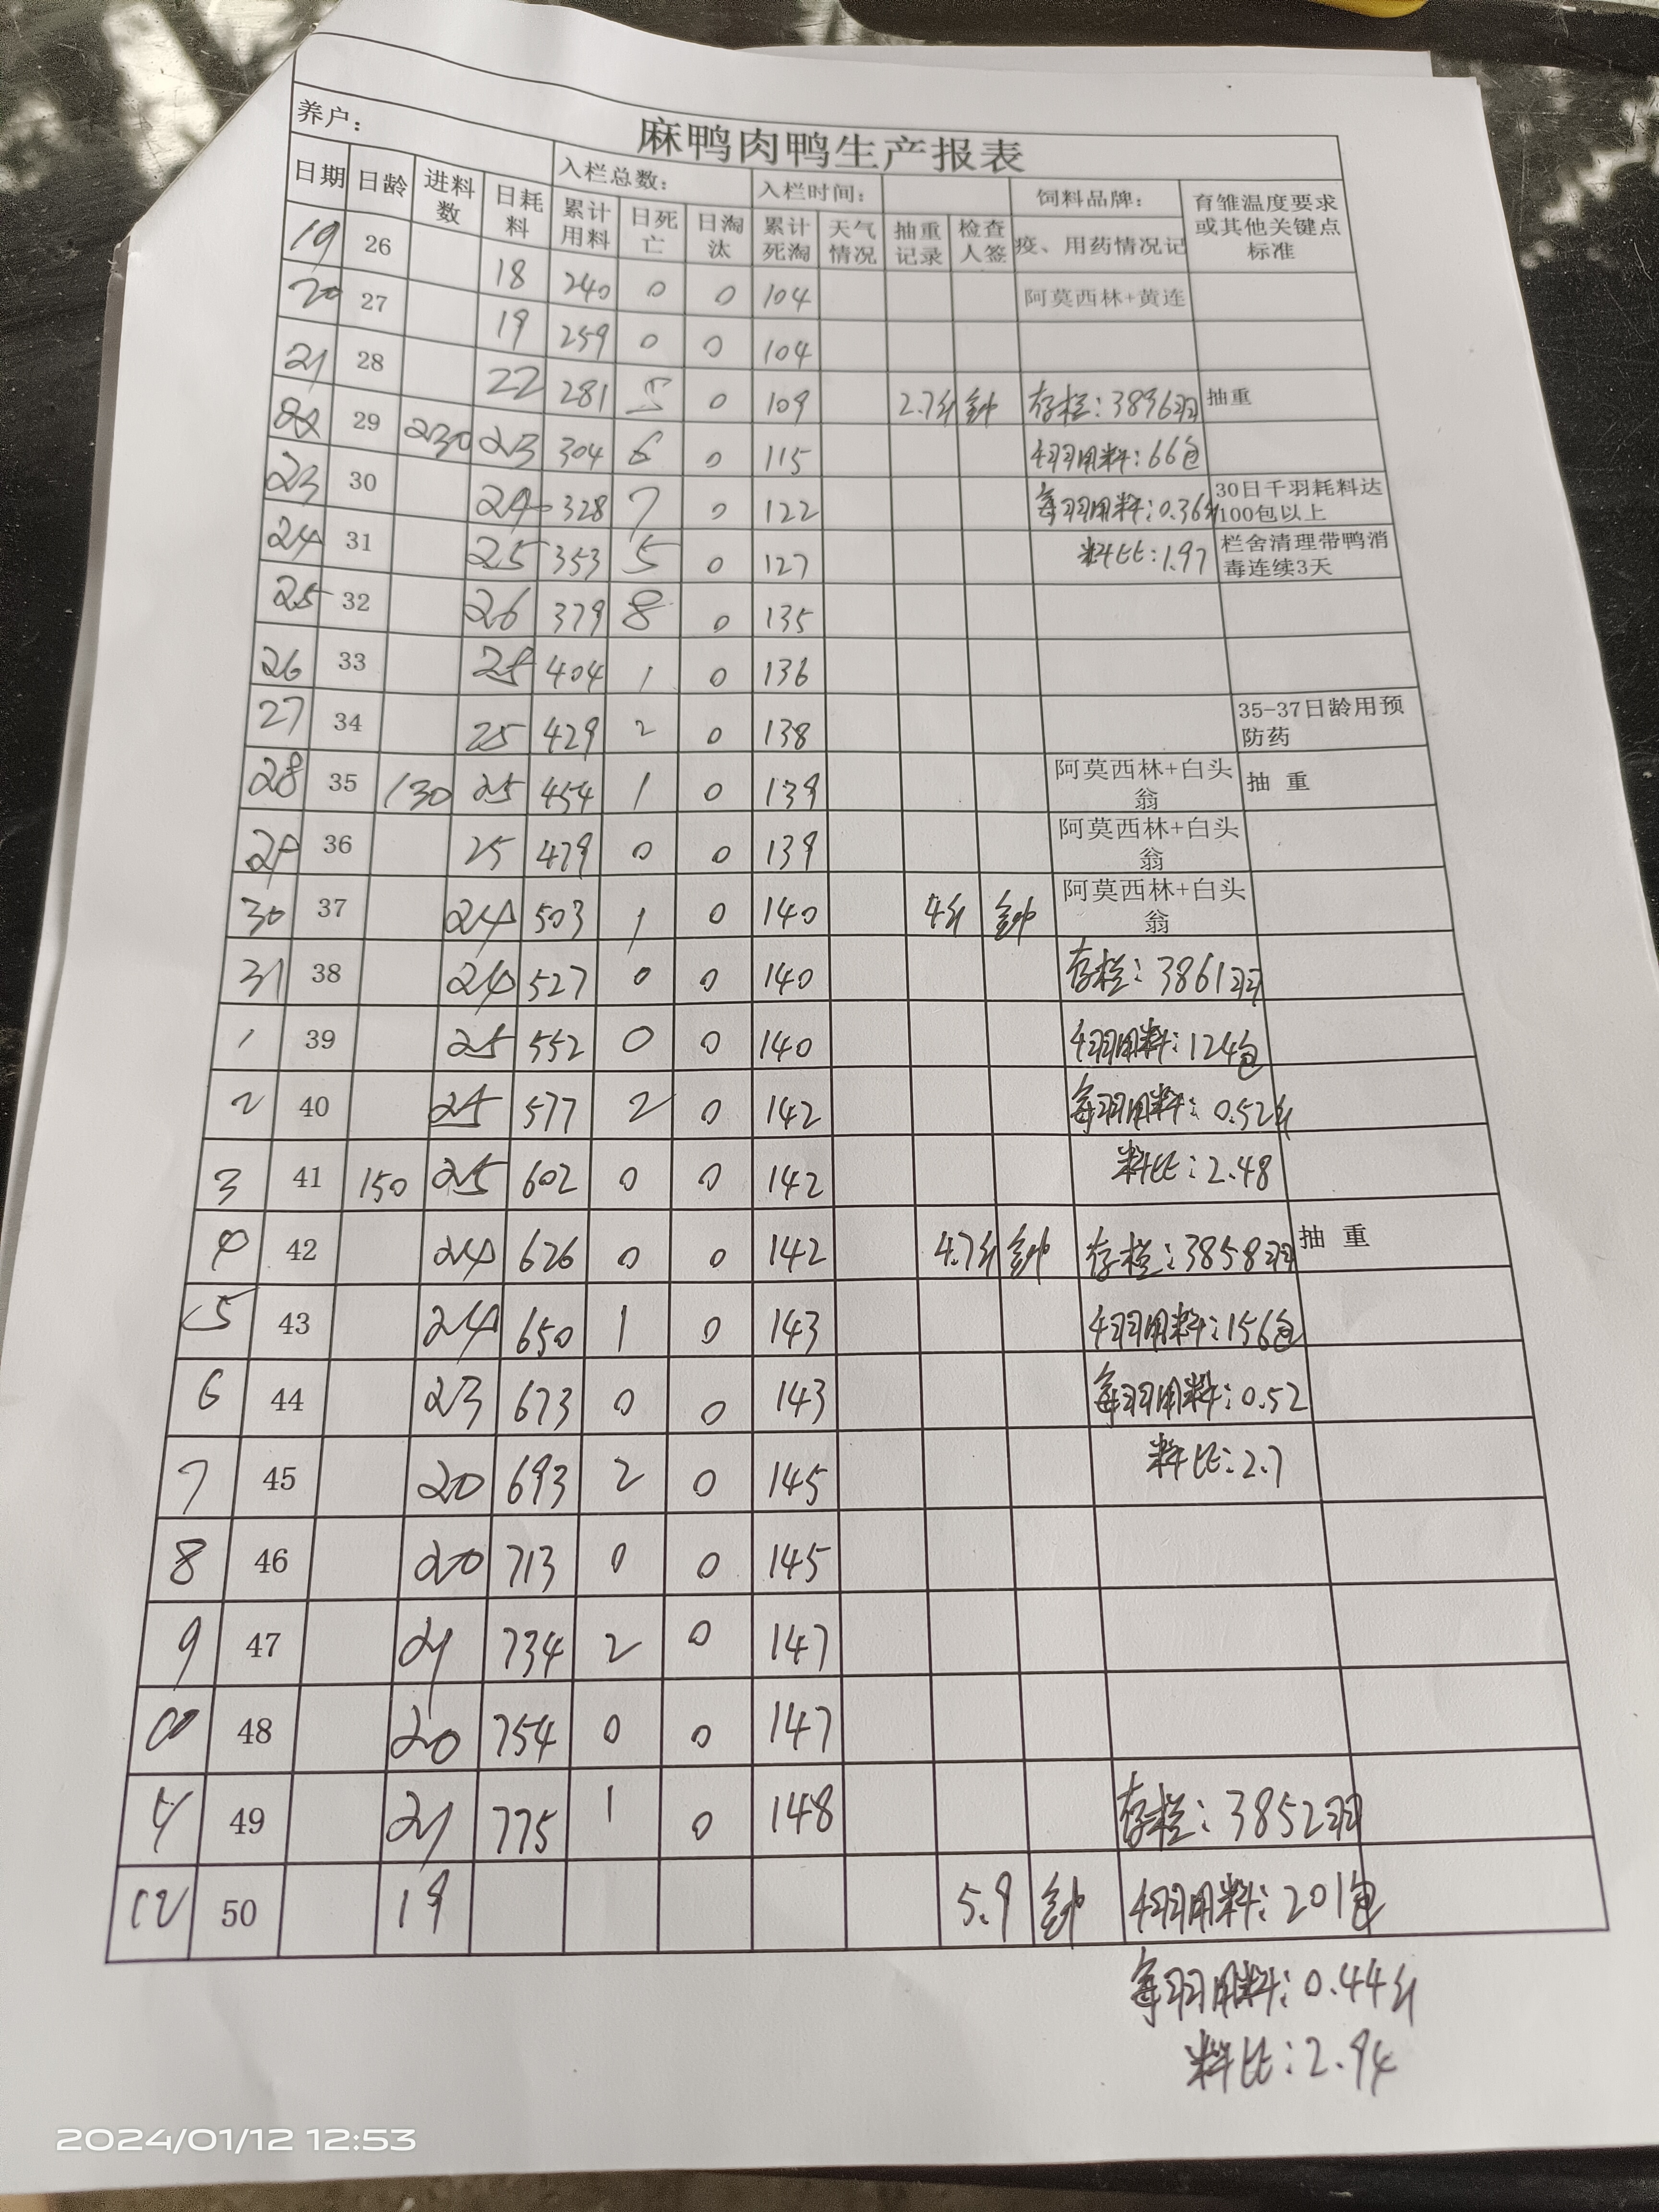 麻鸭肉鸭生产报表
养户： 入栏总数： 入栏时间： 饲料品牌： 育雏温度要求或其他关键点标准
日期 日龄 进料数 日耗料 累计用料 日死亡 日淘汰 累计死淘 天气情况 抽重记录 检查人签 疫、用药情况记
19 26 18 240 0 0 104 阿莫西林+黄连
20 27 19 259 0 0 104
21 28 22 281 5 0 109 2.7斤 存栏：3896羽 抽重
22 29 230 23 304 6 0 115 千羽用料：66包
23 30 24 328 7 0 122 每羽用料：0.36斤 30日千羽耗料达100包以上
24 31 25 353 5 0 127 料比：1.97 栏舍清理带鸭消毒连续3天
25 32 26 379 8 0 135
26 33 25 404 1 0 136
27 34 25 429 2 0 138 35-37日龄用预防药
28 35 130 25 454 1 0 139 阿莫西林+白头翁 抽 重
29 36 25 479 0 0 139 阿莫西林+白头翁
30 37 24 503 1 0 140 4斤 阿莫西林+白头翁
31 38 24 527 0 0 140 存栏：3861羽
1 39 25 552 0 0 140 千羽用料：124包
2 40 25 577 2 0 142 每羽用料：0.52斤
3 41 150 25 602 0 0 142 料比：2.48
4 42 24 626 0 0 142 4.7斤 存栏：3858羽 抽 重
5 43 24 650 1 0 143 千羽用料：156包
6 44 23 673 0 0 143 每羽用料：0.52
7 45 20 693 2 0 145 料比：2.7
8 46 20 713 0 0 145
9 47 21 734 2 0 147
10 48 20 754 0 0 147
11 49 21 775 1 0 148 存栏：3852羽
12 50 19 5.9 千羽用料：201包
每羽用料：0.44斤
料比：2.94
2024/01/12 12:53